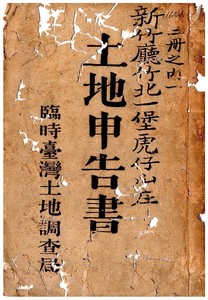 二冊之內一
新竹廳竹北一堡虎仔山庄
土地申告書
臨時臺灣土地調查局